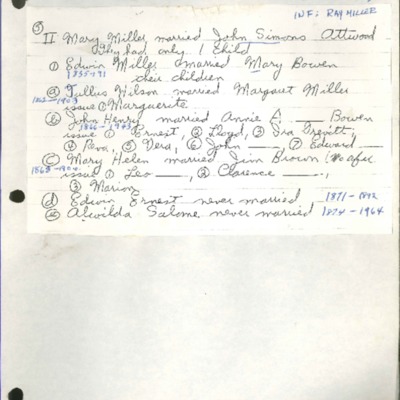 ⑤ INF: RAY MILLER
II Mary Miller married John Simons Attwood
They had only 1 Child
① Edwin Miller married Mary Bowen
1835-91 their children
ⓐ Tullius Wilson married Margaret Miller
issue ① Marguerite
ⓑ John Henry married Annie A. ___ Bowen
1866-1943
issue ① Ernest, ② Lloyd, ③ Ira Grevitt,
④ Reva, ⑤ Vera, ⑥ John ___, ⑦ Edward ___
ⓒ Mary Helen married Jim Brown (No
issue ① Leo ___, ② Clarence ___,
③ Marion
ⓓ Edwin Ernest never married 1871-1892
ⓔ Alwilda Salome never married 1874-1964